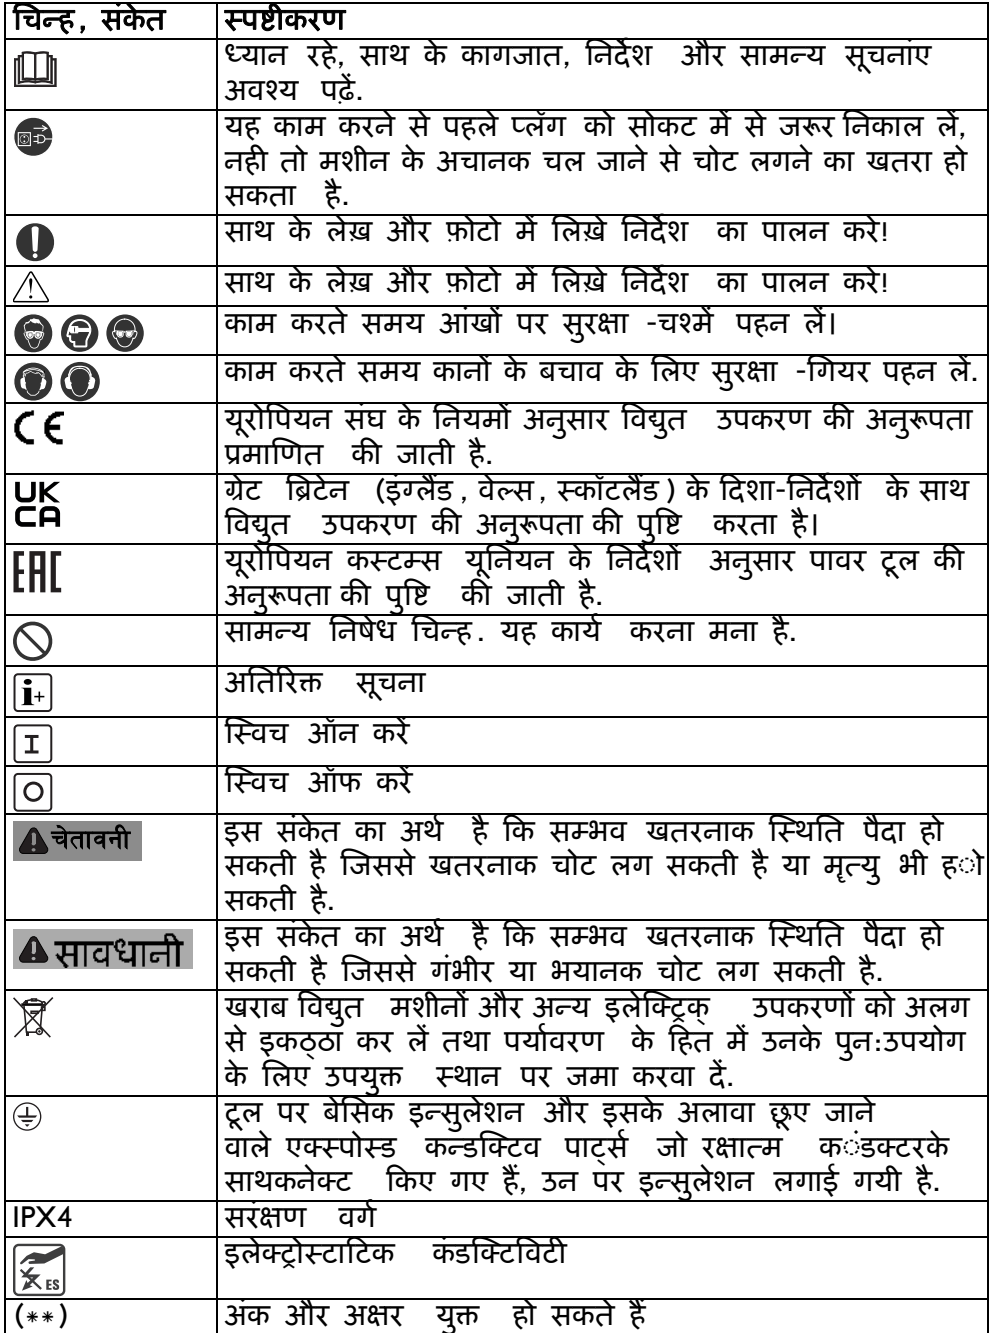 चिन्ह, संकेत स्पष्टीकरण
ध्यान रहे, साथ के कागजात, निर्देश और सामन्य सूचनांए
अवश्य पढ़ें.
यह काम करने से पहले प्लॅग को सोकट में से जरूर निकाल लें,
नही तो मशीन के अचानक चल जाने से चोट लगने का खतरा हो
सकता है.
साथ के लेख़ और फ़ोटो में लिख़े निर्देश का पालन करे!
साथ के लेख़ और फ़ोटो में लिख़े निर्देश का पालन करे!
काम करते समय आंखों पर सुरक्षा -चश्में पहन लें।
काम करते समय कानों के बचाव के लिए सुरक्षा -गियर पहन लें.
CE यूरोपियन संघ के नियमों अनुसार विद्युत उपकरण की अनुरूपता
प्रमाणित की जाती है.
UK ग्रेट ब्रिटेन (इंग्लैंड, वेल्स, स्कॉटलैंड) के दिशा-निर्देशों के साथ
CA विद्युत उपकरण की अनुरूपता की पुष्टि करता है।
EAC यूरोपियन कस्टम्स यूनियन के निर्देशों अनुसार पावर टूल की
अनुरूपता की पुष्टि की जाती है.
सामन्य निषेध चिन्ह. यह कार्य करना मना है.
i+ अतिरिक्त सूचना
I स्विच ऑन करें
O स्विच ऑफ करें
चेतावनी इस संकेत का अर्थ है कि सम्भव खतरनाक स्थिति पैदा हो
सकती है जिससे खतरनाक चोट लग सकती है या मृत्यु भी ह◌ो
सकती है.
सावधानी इस संकेत का अर्थ है कि सम्भव खतरनाक स्थिति पैदा हो
सकती है जिससे गंभीर या भयानक चोट लग सकती है.
खराब विद्युत मशीनों और अन्य इलेक्ट्रिक् उपकरणों को अलग
से इकठ्ठा कर लें तथा पर्यावरण के हित में उनके पुन:उपयोग
के लिए उपयुक्त स्थान पर जमा करवा दें.
टूल पर बेसिक इन्सुलेशन और इसके अलावा छूए जाने
वाले एक्स्पोस्ड कन्डक्टिव पार्ट्स जो रक्षात्म क◌ंडक्टरके
साथकनेक्ट किए गए हैं, उन पर इन्सुलेशन लगाई गयी है.
IPX4 सरंक्षण वर्ग
ES इलेक्ट्रोस्टाटिक कंडक्टिविटी
(**) अंक और अक्षर युक्त हो सकते हैं